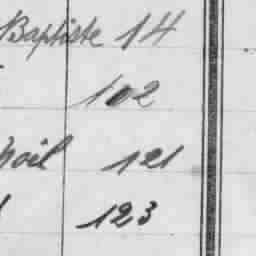 Baptiste 14
102
Noil 121
123